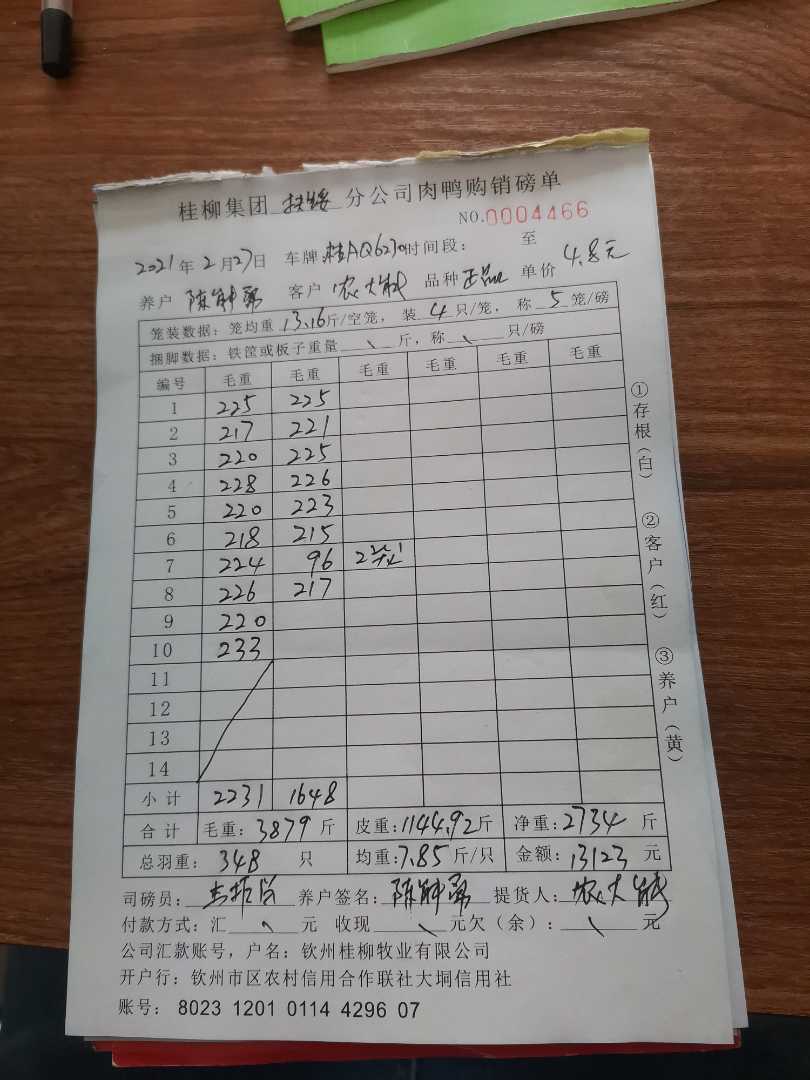 桂柳集团 扶绥 分公司肉鸭购销磅单
NO.0004466
2021年2月27日 车牌:桂AQ6270 时间段: 至
养户 陈 客户 农大 品种 正品 单价 4.8元
笼装数据:笼均重 13.16 斤/空笼, 装 4 只/笼, 称 5 笼/磅
捆脚数据:铁筐或板子重量 \ 斤,称 \ 只/磅
编号 毛重 毛重 毛重 毛重 毛重 毛重
1 225 225
2 217 221
3 220 225
4 228 226
5 220 223
6 218 215
7 224 96 2
8 226 217
9 220
10 233
11
12
13
14
小计 2231 1648
合计 毛重:3879 斤 皮重:1144.92斤 净重:2734 斤
总羽重: 348 只 均重:7.85 斤/只 金额:13123 元
司磅员: 养户签名: 陈 提货人: 农大
付款方式:汇 \ 元 收现 \ 元欠(余): \ 元
公司汇款账号,户名:钦州桂柳牧业有限公司
开户行:钦州市区农村信用合作联社大垌信用社
账号: 8023 1201 0114 4296 07
①存根(白)
②客户(红)
③养户(黄)